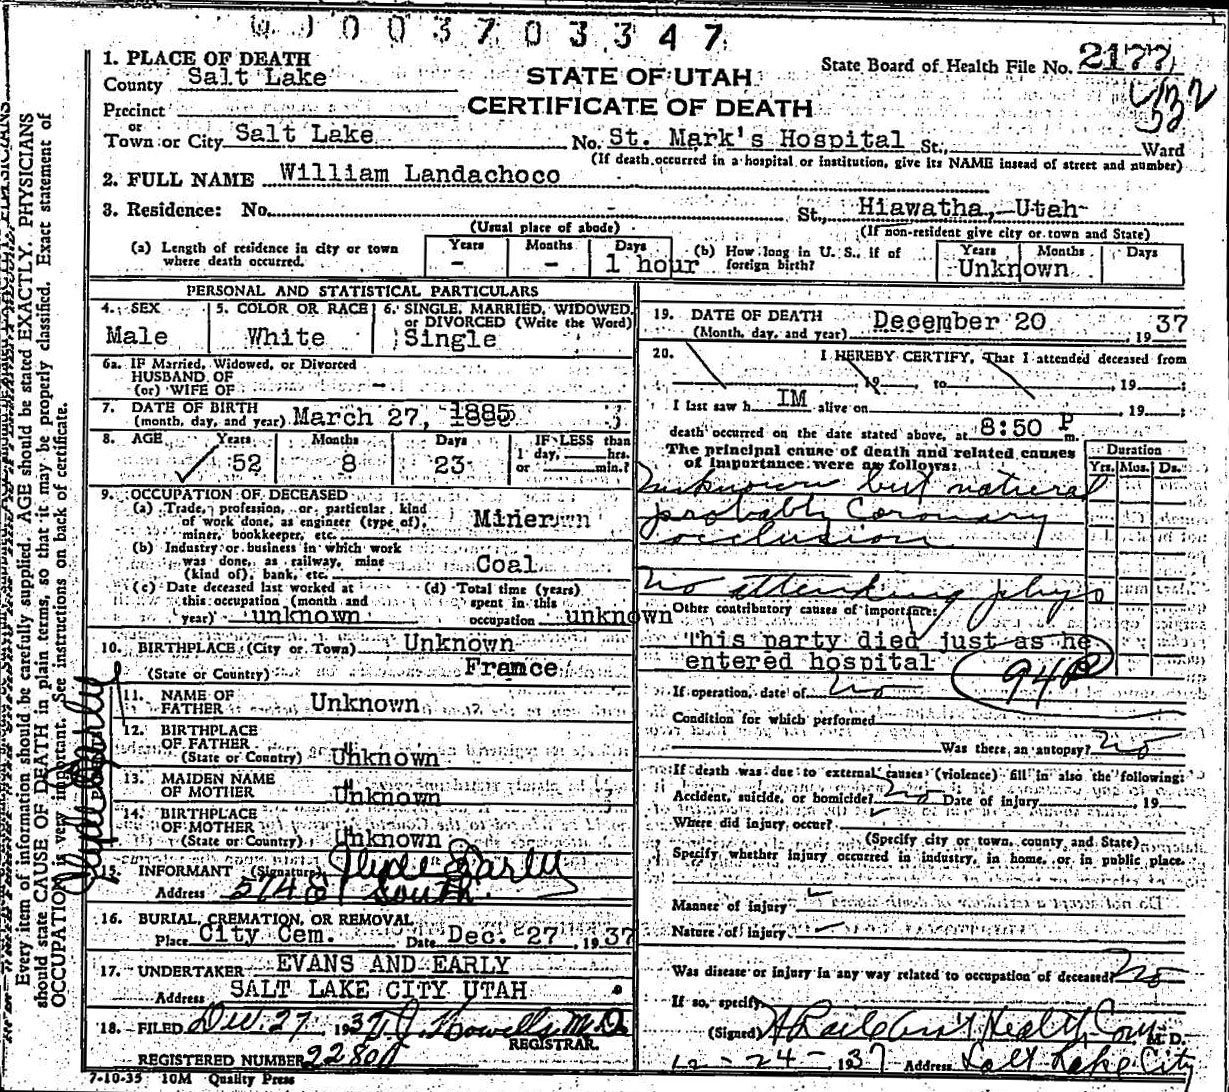 0 0 0 3 7 0 3 3 4 7
1. PLACE OF DEATH
County Salt Lake
STATE OF UTAH
State Board of Health File No. 2177
Precinct
CERTIFICATE OF DEATH
or
Town or City Salt Lake No. St. Mark's Hospital St., Ward
(If death occurred in a hospital or institution, give its NAME insead of street and number)
2. FULL NAME William Landachoco
3. Residence: No. St., Hiawatha, Utah
(Usual place of abode) (If non-resident give city or town and State)
(a) Length of residence in city or town where death occurred. Years - Months - Days 1 hour
(b) How long in U. S., if of foreign birth? Years Months Days Unknown
PERSONAL AND STATISTICAL PARTICULARS
4. SEX 5. COLOR OR RACE 6. SINGLE, MARRIED, WIDOWED, or DIVORCED (Write the Word)
Male White Single
6a. IF Married, Widowed, or Divorced
HUSBAND OF
(or) WIFE OF -
7. DATE OF BIRTH
(month, day, and year) March 27, 1885
8. AGE Years Months Days IF LESS than
1 day, hrs.
or min.?
52 8 23
9. OCCUPATION OF DECEASED
(a) Trade, profession, or particular kind
of work done, as engineer (type of),
miner, bookkeeper, etc. Miner
(b) Industry or business in which work
was done, as railway, mine
(kind of), bank, etc. Coal
(c) Date deceased last worked at
this occupation (month and
year) unknown
(d) Total time (years)
spent in this
occupation unknown
10. BIRTHPLACE (City or Town) Unknown
(State or Country) France
11. NAME OF
FATHER Unknown
12. BIRTHPLACE
OF FATHER
(State or Country) Unknown
13. MAIDEN NAME
OF MOTHER Unknown
14. BIRTHPLACE
OF MOTHER
(State or Country) Unknown
15. INFORMANT (Signature) Early
Address 574 E South
16. BURIAL, CREMATION, OR REMOVAL
Place City Cem. Date Dec. 27, 1937
17. UNDERTAKER EVANS AND EARLY
Address SALT LAKE CITY UTAH
18. FILED Dec. 27 1937 M.D.
REGISTRAR.
REGISTERED NUMBER 2280
7-10-35 10M Quality Press
19. DATE OF DEATH
(Month, day, and year) December 20, 1937
20. I HEREBY CERTIFY, That I attended deceased from
, 19 , to , 19 ;
I last saw h IM alive on , 19 ;
death occurred on the date stated above, at 8:50 P m.
The principal cause of death and related causes
of importance were as follows:
Duration
Yrs. Mos. Ds.
Unknown but natural
probably Coronary
occlusion
No attending phys
Other contributory causes of importance:
This party died just as he
entered hospital
If operation, date of no
Condition for which performed
Was there an autopsy? no
If death was due to external causes (violence) fill in also the following:
Accident, suicide, or homicide? no Date of injury , 19
Where did injury occur?
(Specify city or town, county and State)
Specify whether injury occurred in industry, in home, or in public place.
Manner of injury
Nature of injury
Was disease or injury in any way related to occupation of deceased? No
If so, specify
(Signed) Health Com M. D.
12-24-1937 Address Salt Lake City
Every item of information should be carefully supplied. AGE should be stated EXACTLY. PHYSICIANS
should state CAUSE OF DEATH in plain terms, so that it may be properly classified. Exact statement of
OCCUPATION is very important. See instructions on back of certificate.